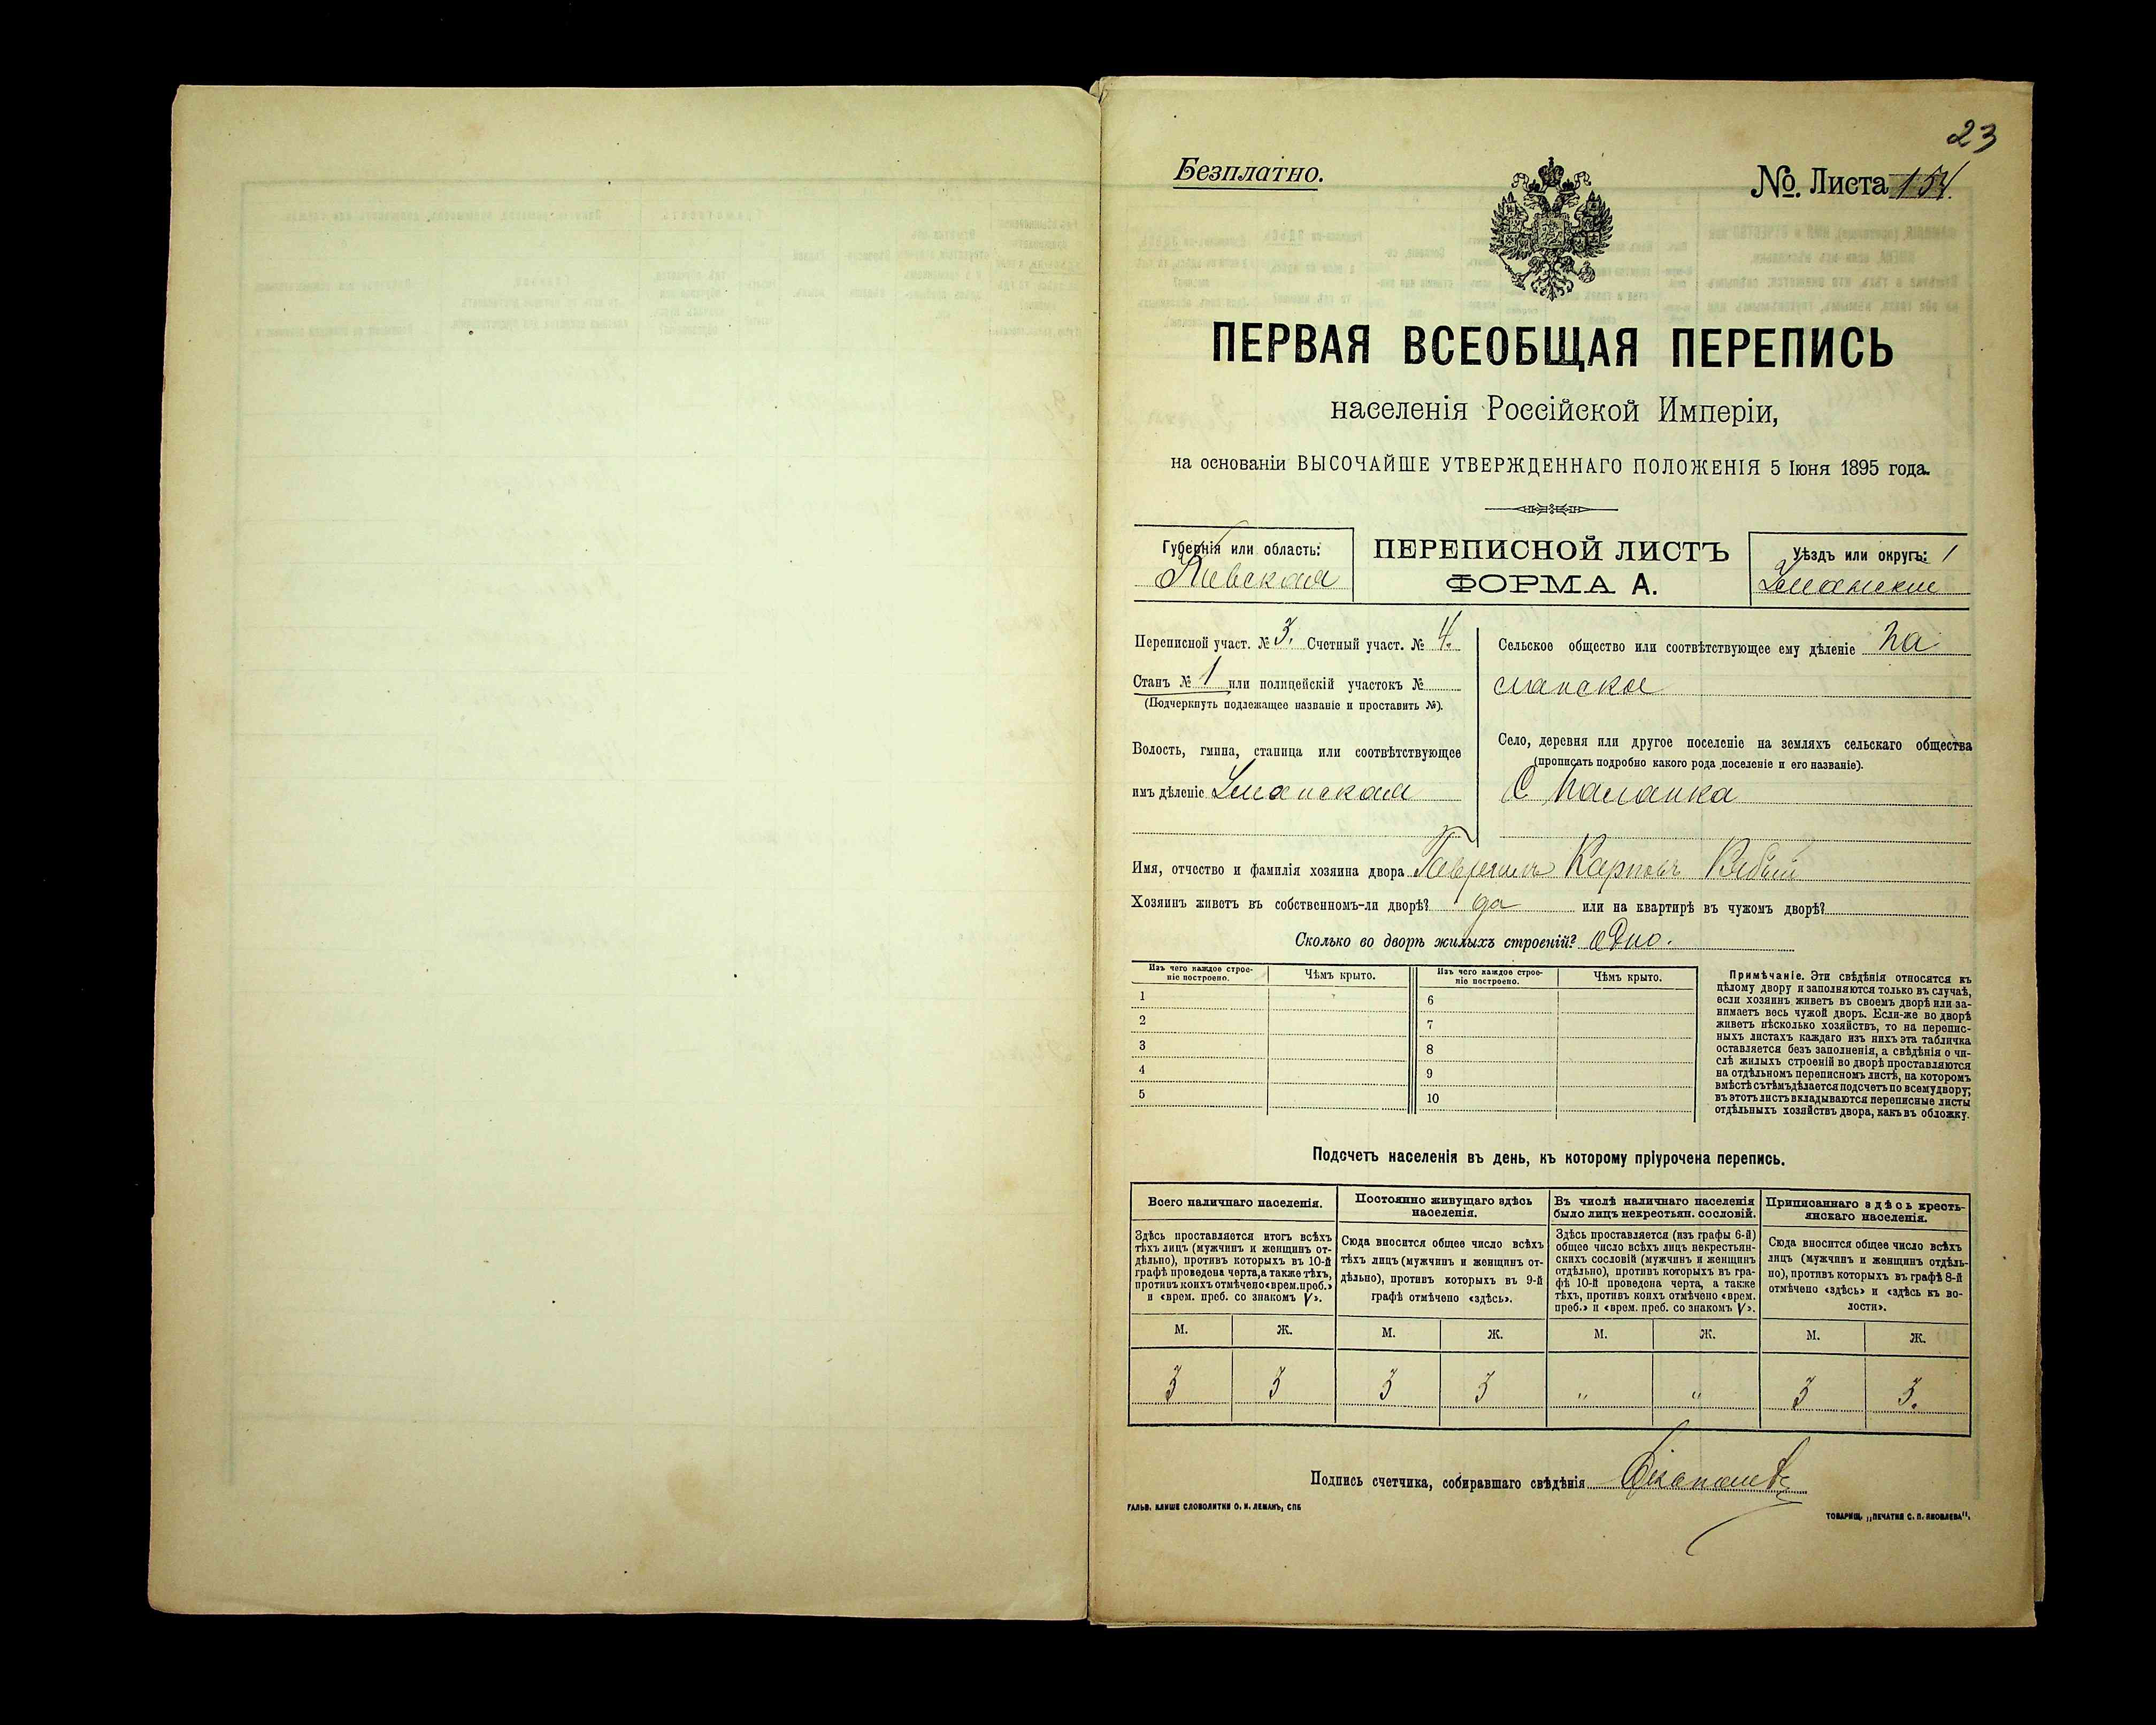 23
Безплатно.
№ Листа 154.
ПЕРВАЯ ВСЕОБЩАЯ ПЕРЕПИСЬ
населенія Россійской Имперіи,
на основаніи ВЫСОЧАЙШЕ УТВЕРЖДЕННАГО ПОЛОЖЕНІЯ 5 Іюня 1895 года.
Губернія или область:
Кіевская
ПЕРЕПИСНОЙ ЛИСТЪ
ФОРМА А.
Уѣздъ или округъ: 1
Уманскій
Переписной участ. № 3. Счетный участ. № 4.
Станъ № 1 или полицейскій участокъ №
(Подчеркнуть подлежащее названіе и проставить №).
Волость, гмина, станица или соотвѣтствующее
имъ дѣленіе Уманская
Сельское общество или соотвѣтствующее ему дѣленіе Па
ланское
Село, деревня или другое поселеніе на земляхъ сельскаго общества
(прописать подробно какого рода поселеніе и его названіе).
С Паланка
Имя, отчество и фамилія хозяина двора Гавріилъ Карповъ
Хозяинъ живетъ въ собственномъ-ли дворѣ? да или на квартирѣ въ чужомъ дворѣ?
Сколько во дворѣ жилыхъ строеній? одно.
Изъ чего каждое строе-
ніе построено.
Чѣмъ крыто.
Изъ чего каждое строе-
ніе построено.
Чѣмъ крыто.
1
2
3
4
5
6
7
8
9
10
Примѣчаніе. Эти свѣдѣнія относятся къ
цѣлому двору и заполняются только въ случаѣ,
если хозяинъ живетъ въ своемъ дворѣ или за-
нимаетъ весь чужой дворъ. Если-же во дворѣ
живетъ нѣсколько хозяйствъ, то на перепис-
ныхъ листахъ каждаго изъ нихъ эта табличка
оставляется безъ заполненія, а свѣдѣнія о чи-
слѣ жилыхъ строеній во дворѣ проставляются
на отдѣльномъ переписномъ листѣ, на которомъ
вмѣстѣ съ тѣмъ дѣлается подсчетъ по всему двору;
въ этотъ листъ вкладываются переписные листы
отдѣльныхъ хозяйствъ двора, какъ въ обложку.
Подсчетъ населенія въ день, къ которому пріурочена перепись.
Всего наличнаго населенія.
Здѣсь проставляется итогъ всѣхъ
тѣхъ лицъ (мужчинъ и женщинъ от-
дѣльно), противъ которыхъ въ 10-й
графѣ проведена черта, а также тѣхъ,
противъ коихъ отмѣчено «врем. преб.»
и «врем. преб. со знакомъ V».
Постоянно живущаго здѣсь
населенія.
Сюда вносится общее число всѣхъ
тѣхъ лицъ (мужчинъ и женщинъ от-
дѣльно), противъ которыхъ въ 9-й
графѣ отмѣчено «здѣсь».
Въ числѣ наличнаго населенія
было лицъ некрестьян. сословій.
Здѣсь проставляется (изъ графы 6-й)
общее число всѣхъ лицъ некрестьян-
скихъ сословій (мужчинъ и женщинъ
отдѣльно), противъ которыхъ въ гра-
фѣ 10-й проведена черта, а также
тѣхъ, противъ коихъ отмѣчено «врем.
преб.» и «врем. преб. со знакомъ V».
Приписаннаго здѣсь кресть-
янскаго населенія.
Сюда вносится общее число всѣхъ
лицъ (мужчинъ и женщинъ отдѣль-
но), противъ которыхъ въ графѣ 8-й
отмѣчено «здѣсь» и «здѣсь къ во-
лости».
М. Ж. М. Ж. М. Ж. М. Ж.
3 3 3 3 " " 3 3.
Подпись счетчика, собиравшаго свѣдѣнія
ГАЛЬВ. КЛИШЕ СЛОВОЛИТНИ О. И. ЛЕМАНЪ, СПБ
ТОВАРИЩ. „ПЕЧАТНЯ С. П. ЯКОВЛЕВА".